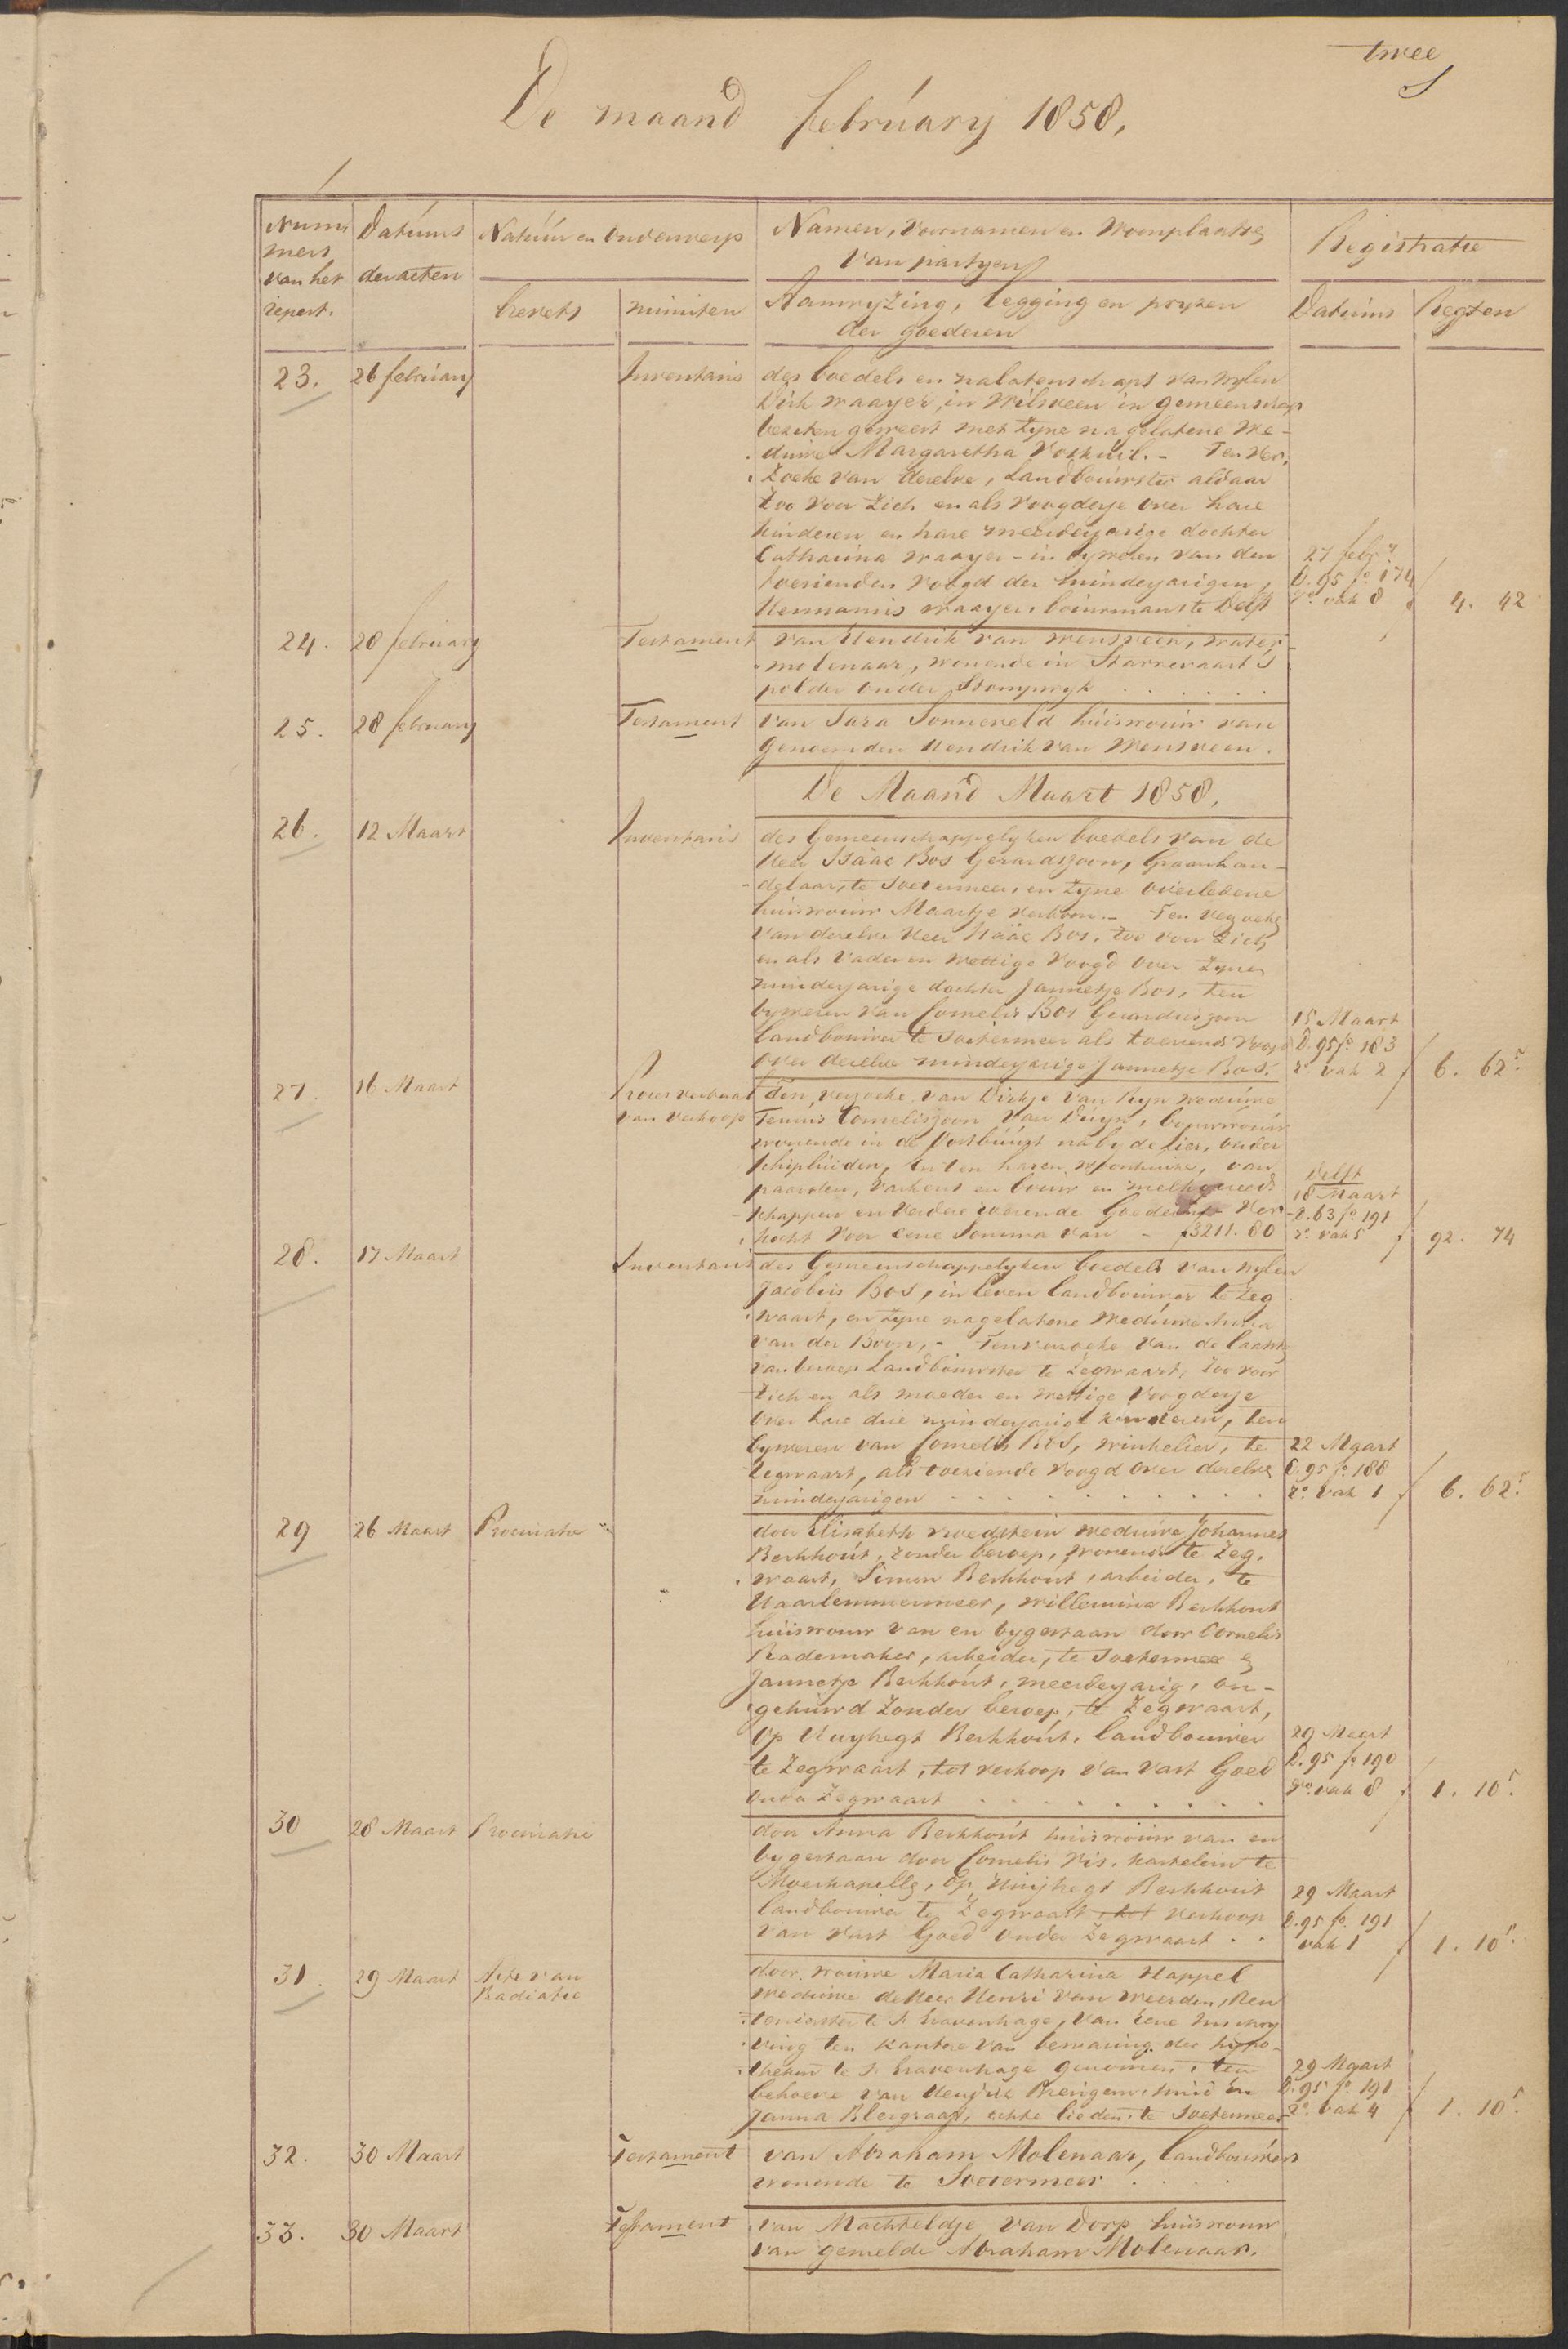 twee
De maand february 1858,
Num
mers
van het
repert.
Datums
der acten
Natuur en Onderwerp
brevets
minuten
Namen, Voornamen en Woonplaatse
van partyen
Aanwyzing, legging en pryzen
der goederen
Registratie
Datums
Regten
23.
26 february
Inventaris
des boedels en nalatenschaps van wylen
Dirk Waayer, in Wilsveen in gemeenschap
bezeten geweest met zyne nagelatene We-
duwe Margaretha Voskuil. - Ten Ver,
zoeke van dezelve, Landbouwster aldaar
Zoo Voor Zich en als Voogdesje over hare
kinderen en hare meerderjarige dochter
Catharina Waayer - in bywezen van den
toezienden Voogd der minderjarigen,
Hermanus Waayer, bouwman te Delft
27 febry
D. 95 fo 174
vo. vak 8
4. 42
24.
28 february
Testament
van Hendrik van Wensveen, water-
molenaar, wonende in Starrevaart's
polder onder Stompwyk . . . . . .
25.
28 february
Testament
van Sara Sonneveld huisvrouw van
genoemden Hendrik van Wensveen.
De Maand Maart 1858,
26.
12 Maart
Inventaris
des Gemeenschappelyken boedels van de
Heer Isäac Bos Gerardszoon, Graanhan-
delaar, te Soetermeer, en Zyne Overledene
huisvrouw Maartje Verboom. - Ten verzoeke
van dezelve Heer Isäac Bos, zoo voor Zich
en als Vader en Wettige Voogd over Zyne
minderjarige dochter Jannetje Bos, ten
bywezen van Cornelis Bos Gerarduszoon
landbouwer te Soetermeer als toeziende Voogd
over dezelve minderjarige Jannetje Bos.
15 Maart
D. 95 fo. 183
ro. vak 2
6. 62 5.
27.
16 Maart
Proces verbaal
van Verkoop
Ten verzoeke van Dirkje van Ryn weduwe
Teunis Corneliszoon van Duyn, bouwvrouw
wonende in de Voorbuurt naby de Lier, onder
Schipluiden, en ten haren woonhuize, van
paarden, varkens en bouw en melkgereed-
schappen en verdere roerende Goederen - Ver-
kocht voor eene Somma van - f3211.80
Delft
18 Maart
D. 63 fo. 191
ro. vak 5
92. 74
28.
17 Maart
Inventaris
des Gemeenschappelyken boedels van wylen
Jacobus Bos, in leven landbouwer te Zeg
waart, en Zyne nagelatene Weduwe Anna
van der Boon, - Ten verzoeke van de laatste
van beroep Landbouwster te Zegwaart, Zoo voor
Zich en als moeder en wettige Voogdesje
over hare drie minderjarige kinderen, ten
bywezen van Cornelis Bos, winkelier, te
Zegwaart, als toeziende Voogd over dezelve
minderjarigen . . . . . . . . . .
22 Maart
D. 95 fo. 188
ro. vak 1
6. 62 5.
29
26 Maart
Procuratie
door Elisabeth Roedstein weduwe Johannes
Berkhout, zonder beroep, wonende te Zeg,
waart, Simon Berkhout, arbeider, te
Haarlemmermeer, Willemina Berkhout
huisvrouw van en bygestaan door Cornelis
Rademaker, arbeider, te Soetermeer &
Jannetje Berkhout, meerderjarig, on-
gehuwd zonder beroep, te Zegwaart,
Op Huyhegt Berkhout, landbouwer
te Zegwaart, tot verkoop van Vast Goed
onder Zegwaart . . . . . . . . .
29 Maart
D. 95 fo. 190
vo. vak 8
1. 10 5.
30
28 Maart
Procuratie
door Anna Berkhout huisvrouw van en
bygestaan door Cornelis Vis, kastelein te
Moerkapelle, Op Huijhegt Berkhout
landbouwer te Zegwaart, tot Verkoop
van Vast Goed onder Zegwaart . .
29 Maart
D. 95 fo. 191
vak 1
1. 10 5.
31.
29 Maart
Acte van
Radiatie
door vrouwe Maria Catharina Happel
weduwe de Heer Henri van Weerden, Ren
tenierster te 's Gravenhage, van eene Inschry
ving ten kantore van bewaring der hypo-
theken te 's Gravenhage genomen, ten
behoeve van Hendrik smid en
Janna Bleygraaf, echte lieden, te Soetermeer
29 Maart
D. 95 fo. 191
ro. vak 4
1. 10 5.
32.
30 Maart
Testament
van Abraham Molenaar, landbouwer
wonende te Soetermeer . . . .
33.
30 Maart
Testament
van Machteldje van Dorp huisvrouw
van gemelde Abraham Molenaar.